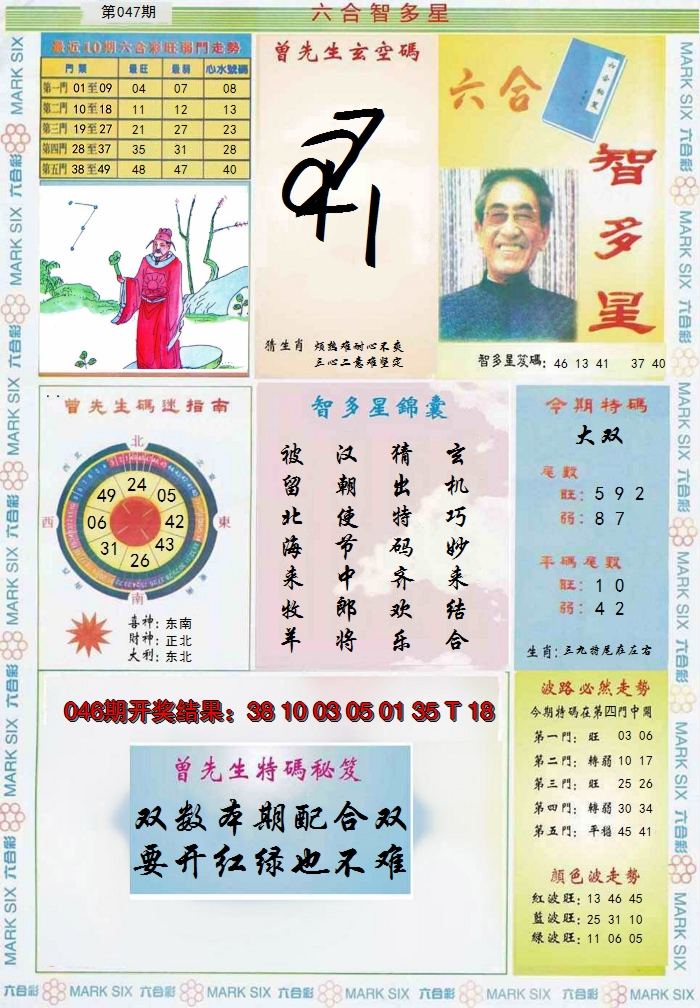 第047期
六合智多星
最近10期六合彩旺弱門走勢
門類 最旺 最弱 心水號碼
第一門 01至09 04 07 08
第二門 10至18 11 12 13
第三門 19至27 21 27 23
第四門 28至37 35 31 28
第五門 38至49 48 47 40
曾先生玄空碼
猜生肖 烦挠难耐心不爽
三心二意难坚定
六合
智多星
智多星笈碼: 46 13 41 37 40
曾先生碼迷指南
北
西
東
南
24
05
42
43
26
31
06
49
喜神: 东南
財神: 正北
大利: 东北
智多星錦囊
玄机巧妙来结合
猜出特码齐欢乐
汉朝使节中郎将
被留北海来牧羊
今期特碼
大双
尾數
旺: 5 9 2
弱: 8 7
平碼尾數
旺: 1 0
弱: 4 2
生肖: 三九特尾在左右
046期开奖结果: 38 10 03 05 01 35 T 18
曾先生特碼秘笈
双数本期配合双
要开红绿也不难
波路必然走勢
今期特碼在第四門中開
第一門: 旺 03 06
第二門: 轉弱 10 17
第三門: 旺 25 26
第四門: 轉弱 30 34
第五門: 平穩 45 41
顔色波走勢
紅波旺: 13 46 45
藍波旺: 25 31 10
緑波旺: 11 06 05
六合彩 MARK SIX